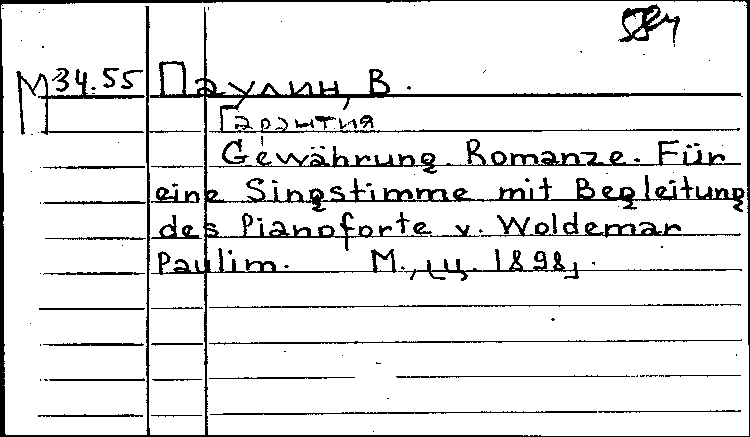 М34.55 Паулин, В.
Гарантия
Gewährung. Romanze. Für
eine Singstimme mit Begleitung
des Pianoforte v. Woldemar
Paulim. М., ц. 1898,.